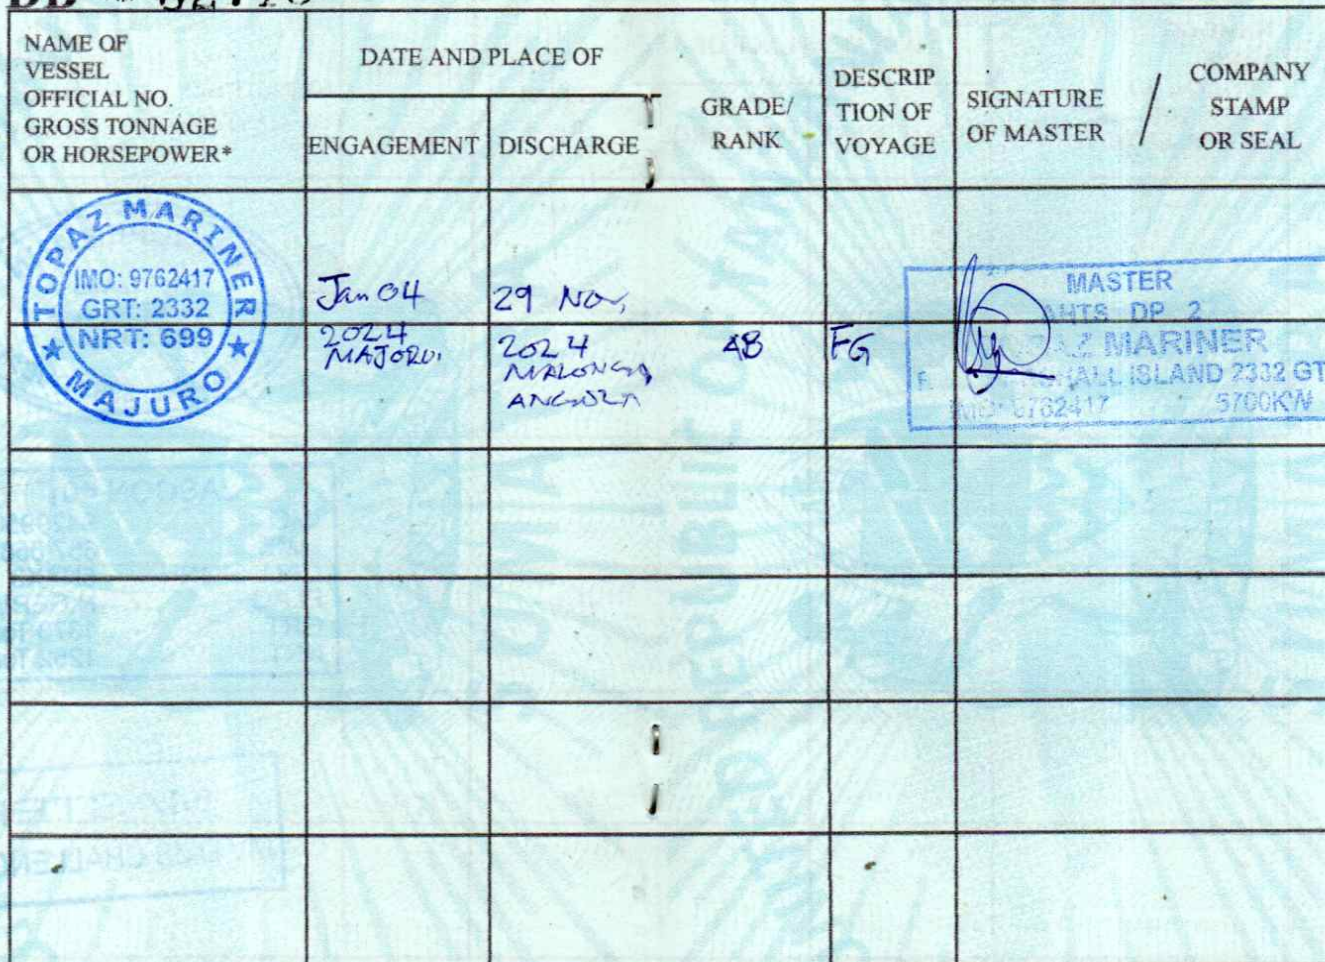 NAME OF
VESSEL
OFFICIAL NO.
GROSS TONNAGE
OR HORSEPOWER*
DATE AND PLACE OF
ENGAGEMENT
DISCHARGE
GRADE/
RANK
DESCRIP
TION OF
VOYAGE
SIGNATURE
OF MASTER
/
COMPANY
STAMP
OR SEAL
TOPAZ MARINER
IMO: 9762417
GRT: 2332
NRT: 699
MAJURO
Jan 04
2024
MAJORU.
29 Nov,
2024
MALONGO,
ANGOLA
AB
FG
MASTER
AHTS DP 2
MARINER
ISLAND 2332 GT
9762417 5700KW